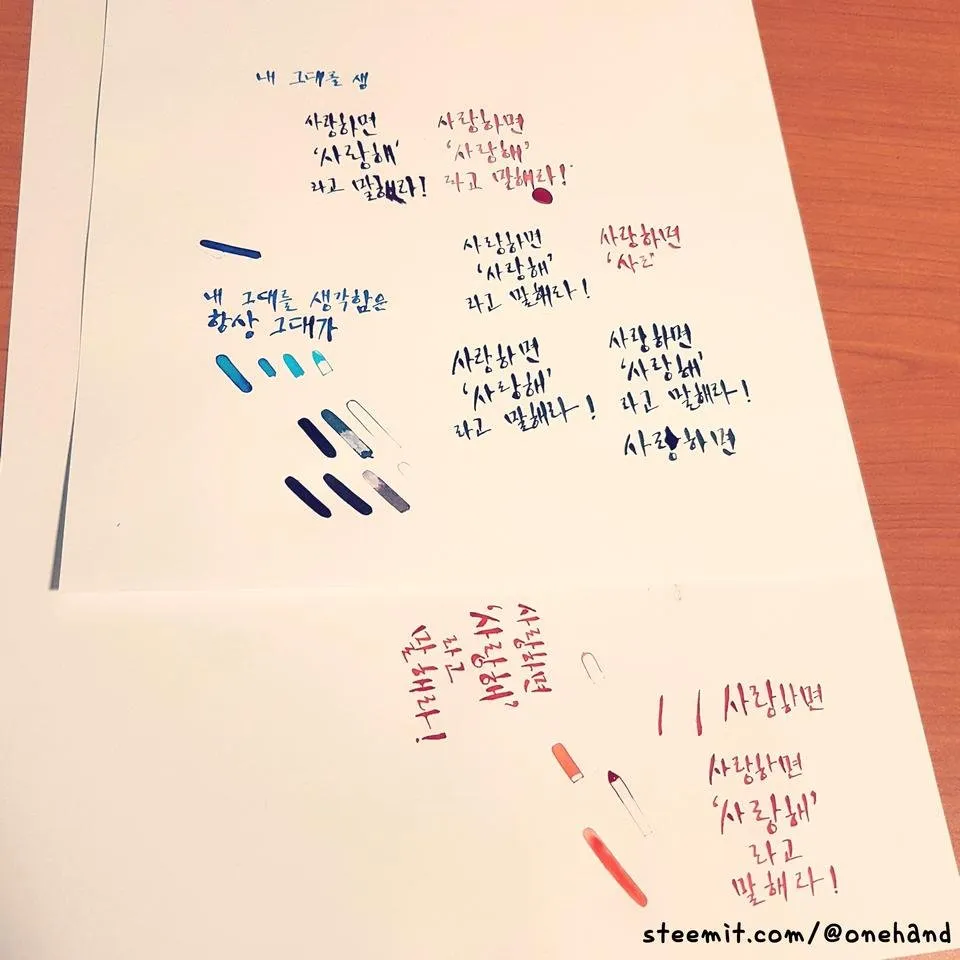 내 그대를 샘
사랑하면
'사랑해'
라고 말해라!
사랑하면
'사랑해'
라고 말해라!
사랑하면
'사랑해'
라고 말해라!
사랑하면
내 그대를 생각함은
항상 그대가
사랑하면
'사랑해'
라고 말해라!
사랑하면
'사랑해'
라고 말해라!
사랑하면
사랑하면
'사랑해'
라고
말해라!
사랑하면
사랑하면
'사랑해'
라고
말해라!
steemit.com/@onehand